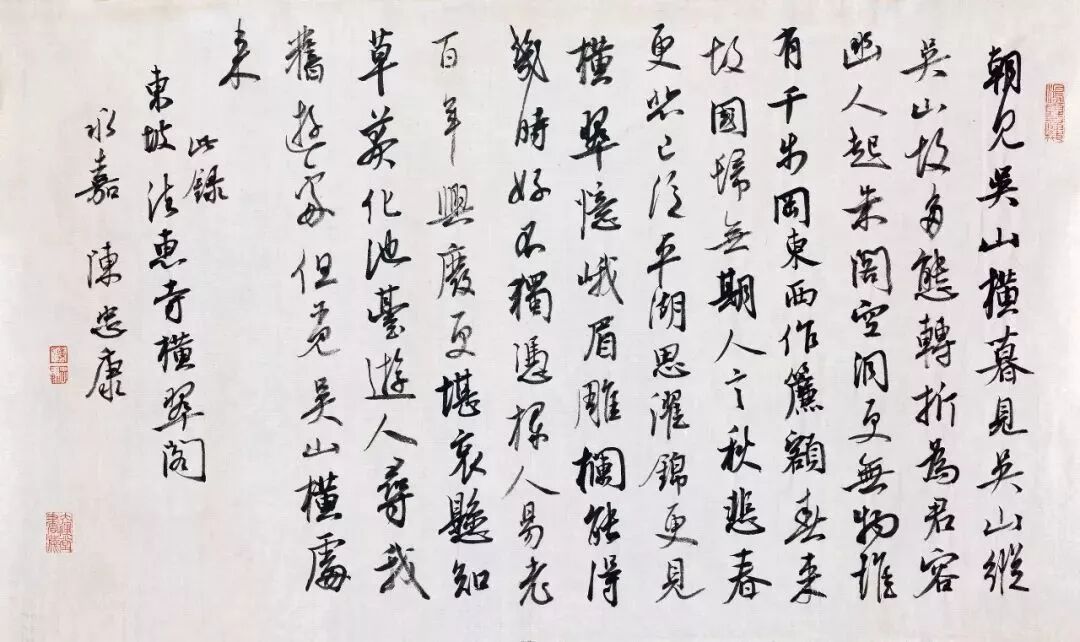 朝見吳山橫暮見吳山縱
吳山故多態轉折為君容
幽人起朱閣空洞更無物惟
有千步岡東西作簾額春來
故國歸無期人言秋悲春
更悲已泛平湖思濯錦更見
橫翠憶峨眉雕欄能得
幾時好不獨憑欄人易老
百年興廢更堪哀懸知
草莽化池臺遊人尋我
舊遊處但覓吳山橫處
來
此錄
東坡法惠寺橫翠閣
永嘉 陳忠康